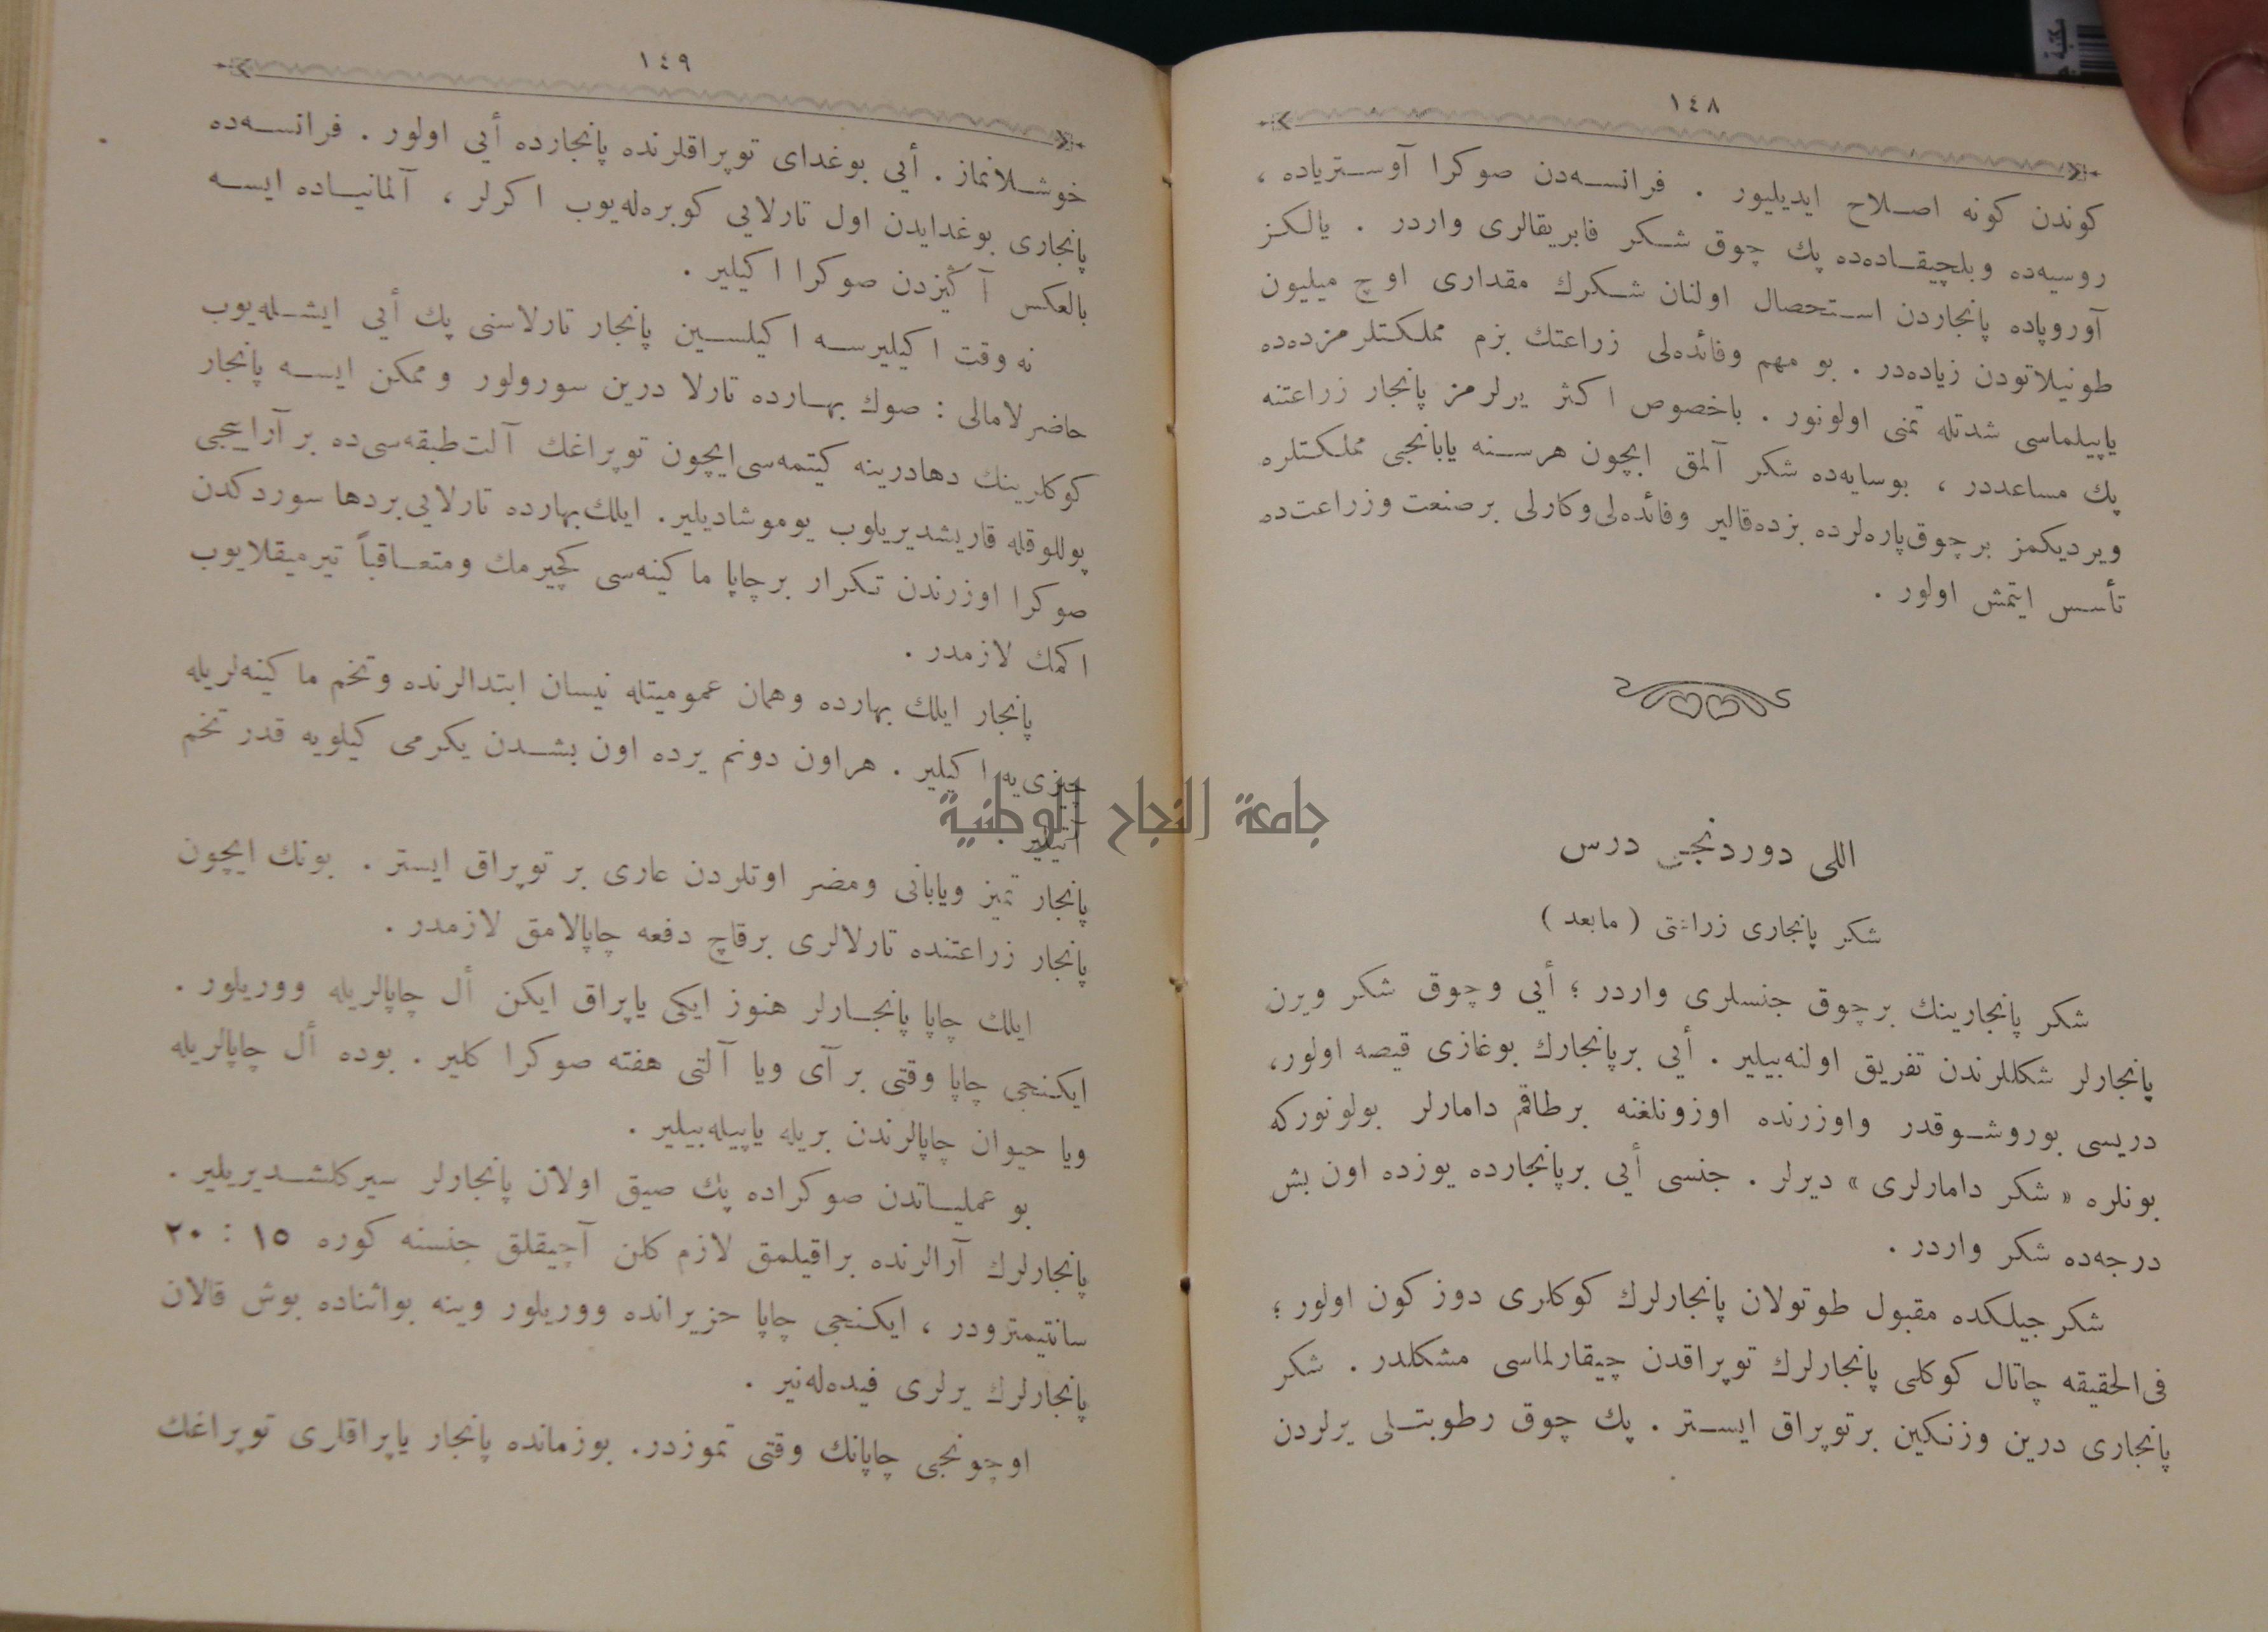 ١٤٨
كوندن كونه اصلاح ايديليور . فرانسه‌دن صوكرا آوسترياده ،
روسيه‌ده وبلچيقاده‌ده پك چوق شكر فابريقالرى واردر . يالكز
آوروپاده پانجاردن استحصال اولنان شكرك مقدارى اوچ ميليون
طونيلاتودن زياده‌در . بو مهم وفائده‌لى زراعتك بزم مملكتلرمزده‌ده
ياپيلماسى شدتله تمنى اولونور . باخصوص اكثر يرلرمز پانجار زراعتنه
پك مساعددر ، بوسايه‌ده شكر آلمق ايچون هرسنه يابانجى مملكتلره
ويرديكمز برچوق پاره‌لرده بزده قالير وفائده‌لى وكارلى برصنعت وزراعت‌ده
تأسس ايتمش اولور .
اللى دوردنجى درس
شكر پانجارى زراعتى ( مابعد )
شكر پانجارينك برچوق جنسلرى واردر ؛ أيى وچوق شكر ويرن
پانجارلر شكللرندن تفريق اولنه‌بيلير . أيى برپانجارك بوغازى قيصه اولور،
دريسى بوروشوقدر واوزرنده اوزونلغنه برطاقم دامارلر بولونوركه
بونلره « شكر دامارلرى » ديرلر . جنسى أيى برپانجارده يوزده اون بش
درجه‌ده شكر واردر .
شكرجيلكده مقبول طوتولان پانجارلرك كوكلرى دوزكون اولور ؛
فى‌الحقيقه چاتال كوكلى پانجارلرك توپراقدن چيقارلماسى مشكلدر . شكر
پانجارى درين وزنكين برتوپراق ايستر . پك چوق رطوبتلى يرلردن
١٤٩
خوشلانماز . أيى بوغداى توپراقلرنده پانجارده أيى اولور . فرانسه‌ده
پانجارى بوغدايدن اول تارلايى كوبره‌له‌يوب اكرلر ، آلمانياده ايسه
بالعكس آكيزدن صوكرا اكيلير .
نه وقت اكيليرسه اكيلسين پانجار تارلاسنى پك أيى ايشله‌يوب
حاضرلامالى : صوك بهارده تارلا درين سورولور وممكن ايسه پانجار
كوكلرينك دهادرينه كيتمه‌سى ايچون توپراغك آلت طبقه‌سى‌ده بر آراييجى
پوللوقله قاريشديريلوب يوموشاديلير. ايلك‌بهارده تارلايى بردها سوردكدن
صوكرا اوزرندن تكرار برچاپا ماكينه‌سى كچيرمك ومتعاقباً تيرميقلايوب
اكمك لازمدر .
پانجار ايلك بهارده وهمان عموميتله نيسان ابتدالرنده وتخم ماكينه‌لريله
چيزى‌يه اكيلير . هراون دونم يرده اون بشدن يكرمى كيلويه قدر تخم
آتيلير
پانجار تميز ويابانى ومضر اوتلردن عارى بر توپراق ايستر . بونك ايچون
پانجار زراعتنده تارلالرى برقاچ دفعه چاپالامق لازمدر .
ايلك چاپا پانجارلر هنوز ايكى ياپراق ايكن أل چاپالريله ووريلور .
ايكنجى چاپا وقتى بر آى ويا آلتى هفته صوكرا كلير . بوده أل چاپالريله
ويا حيوان چاپالرندن بريله ياپيله‌بيلير .
بو عملياتدن صوكراده پك صيق اولان پانجارلر سيركلشديريلير .
پانجارلرك آرالرنده براقيلمق لازم كلن آچيقلق جنسنه كوره ١٥ : ٢٠
سانتيمترودر ، ايكنجى چاپا حزيرانده ووريلور وينه بواثناده بوش قالان
پانجارلرك يرلرى فيده‌له‌نير .
اوچونجى چاپانك وقتى تموزدر. بوزمانده پانجار ياپراقلرى توپراغك
جامعة النجاح الوطنية